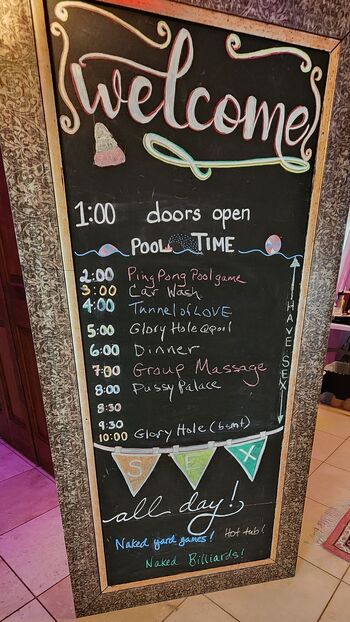 welcome
1:00 doors open
POOL TIME
2:00 Ping Pong Pool game
3:00 Car Wash
4:00 Tunnel of LOVE
5:00 Glory Hole @ pool
6:00 Dinner
7:00 Group Massage
8:00 Pussy Palace
8:30
9:30
10:00 Glory Hole (bsmt)
HAVE SEX
SEX
all day!
Naked yard games! Hot tub!
Naked Billiards!